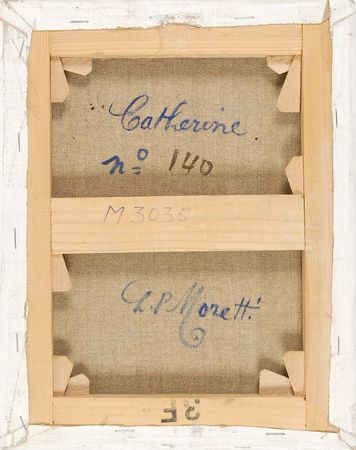 "Catherine"
nº 140
M3035
L.P. Moretti
3F